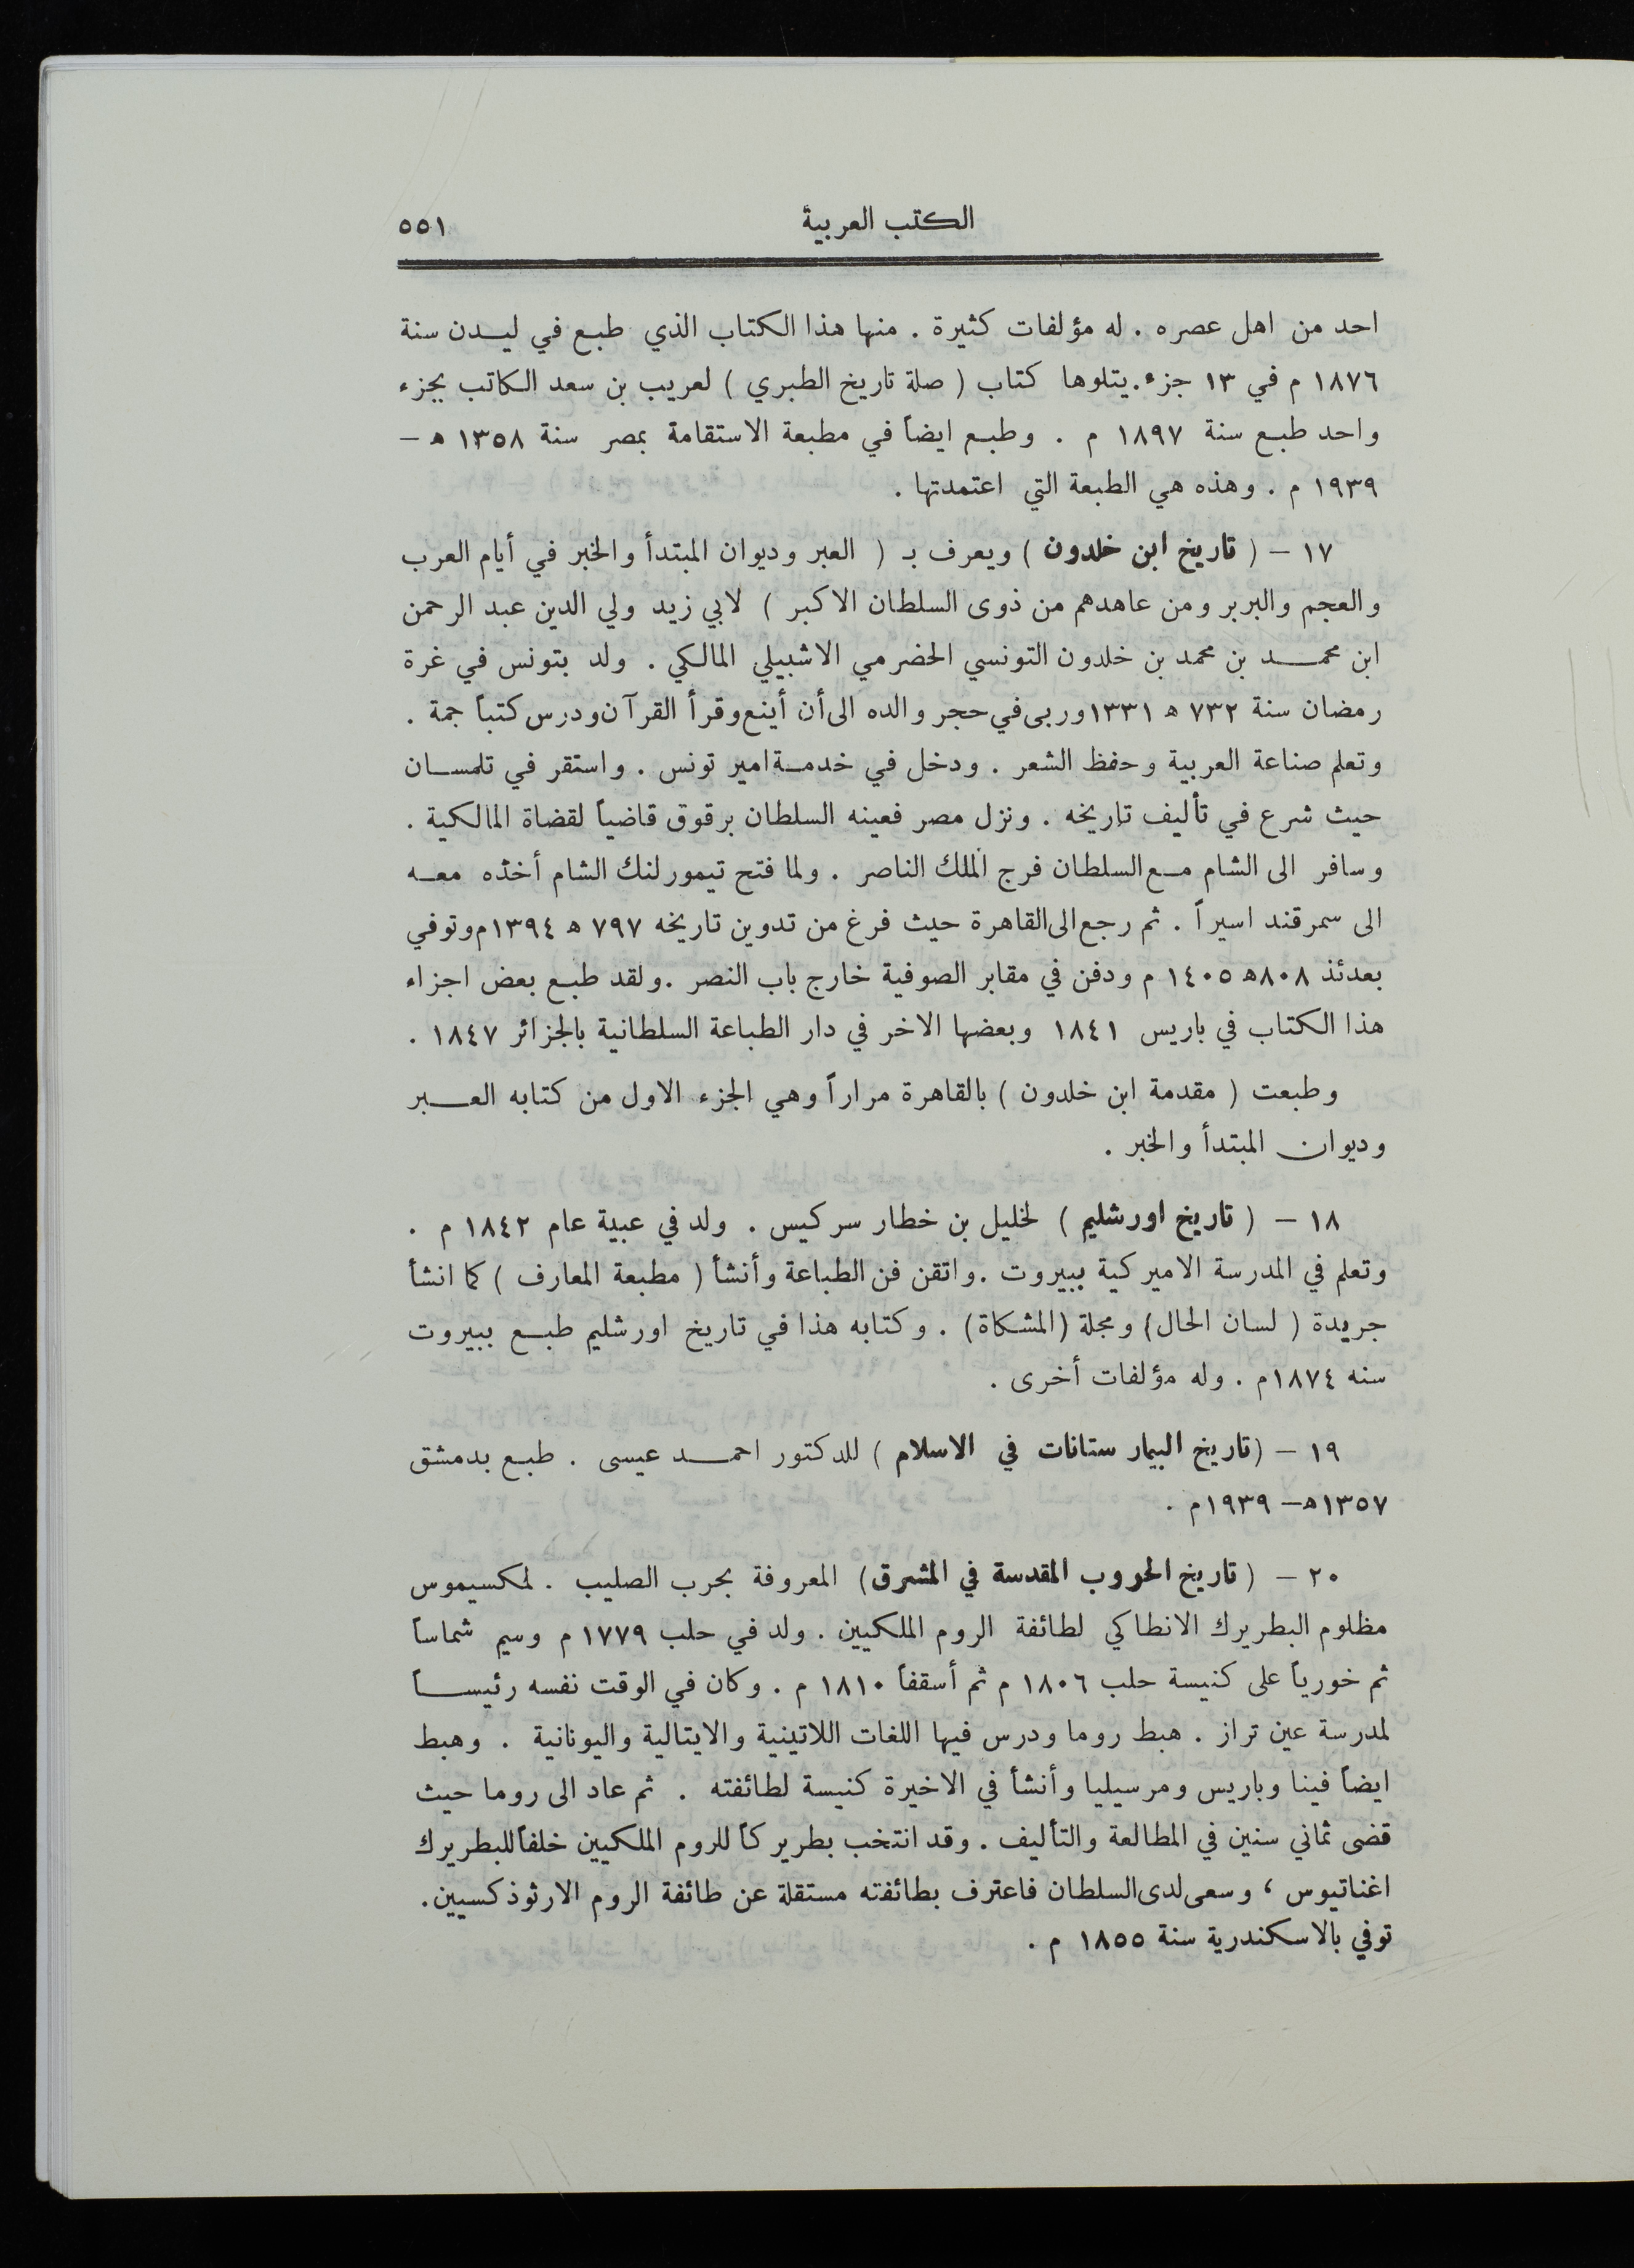 الكتب العربية ٥٥١
احد من اهل عصره . له مؤلفات كثيرة . منها هذا الكتاب الذي طبع في ليدن سنة
١٨٧٦ م في ١٣ جزء. يتلوها كتاب ( صلة تاريخ الطبري ) لعريب بن سعد الكاتب بجزء
واحد طبع سنة ١٨٩٧ م . وطبع ايضاً في مطبعة الاستقامة بمصر سنة ١٣٥٨ ه –
١٩٣٩ م . وهذه هي الطبعة التي اعتمدتها .
١٧ – ( تاريخ ابن خلدون ) ويعرف بـ ( العبر وديوان المبتدأ والخبر في أيام العرب
والعجم والبربر ومن عاهدهم من ذوى السلطان الاكبر ) لابي زيد ولي الدين عبد الرحمن
ابن محمد بن محمد بن خلدون التونسي الحضرمي الاشبيلي المالكي . ولد بتونس في غرة
رمضان سنة ٧٣٢ ه ١٣٣١ وربى في حجر والده الى أن أينع وقرأ القرآن ودرس كتباً جمة .
وتعلم صناعة العربية وحفظ الشعر . ودخل في خدمة امير تونس . واستقر في تلمسان
حيث شرع في تأليف تاريخه . ونزل مصر فعينه السلطان برقوق قاضياً لقضاة المالكية .
وسافر الى الشام مع السلطان فرج الملك الناصر . ولما فتح تيمورلنك الشام أخذه معه
الى سمرقند اسيراً . ثم رجع الى القاهرة حيث فرغ من تدوين تاريخه ٧٩٧ ه ١٣٩٤م وتوفي
بعدئذ ٨٠٨ه ١٤٠٥ م ودفن في مقابر الصوفية خارج باب النصر . ولقد طبع بعض اجزاء
هذا الكتاب في باريس ١٨٤١ وبعضها الاخر في دار الطباعة السلطانية بالجزائر ١٨٤٧ .
وطبعت ( مقدمة ابن خلدون ) بالقاهرة مراراً وهي الجزء الاول من كتابه العبر
وديوان المبتدأ والخبر .
١٨ – ( تاريخ اورشليم ) لخليل بن خطار سركيس . ولد في عبية عام ١٨٤٢ م .
وتعلم في المدرسة الاميركية ببيروت . واتقن فن الطباعة وأنشأ ( مطبعة المعارف ) كما انشأ
جريدة ( لسان الحال) ومجلة (المشكاة) . وكتابه هذا في تاريخ اورشليم طبع ببيروت
سنه ١٨٧٤م . وله مؤلفات أخرى .
١٩ – (تاريخ البيمارستانات في الاسلام ) للدكتور احمد عيسى . طبع بدمشق
١٣٥٧ه– ١٩٣٩م .
٢٠ – ( تاريخ الحروب المقدسة في المشرق) المعروفة بحرب الصليب . لمكسيموس
مظلوم البطريرك الانطاكي لطائفة الروم الملكيين . ولد في حلب ١٧٧٩ م وسيم شماساً
ثم خورياً على كنيسة حلب ١٨٠٦ م ثم أسقفاً ١٨١٠ م . وكان في الوقت نفسه رئيساً
لمدرسة عين تراز . هبط روما ودرس فيها اللغات اللاتينية والايتالية واليونانية . وهبط
ايضاً فينا وباريس ومرسيليا وأنشأ في الاخيرة كنيسة لطائفته . ثم عاد الى روما حيث
قضى ثماني سنين في المطالعة والتأليف . وقد انتخب بطريركاً للروم الملكيين خلفاً للبطريرك
اغناتيوس ، وسعى لدى السلطان فاعترف بطائفته مستقلة عن طائفة الروم الارثوذكسيين .
توفي بالاسكندرية سنة ١٨٥٥ م .